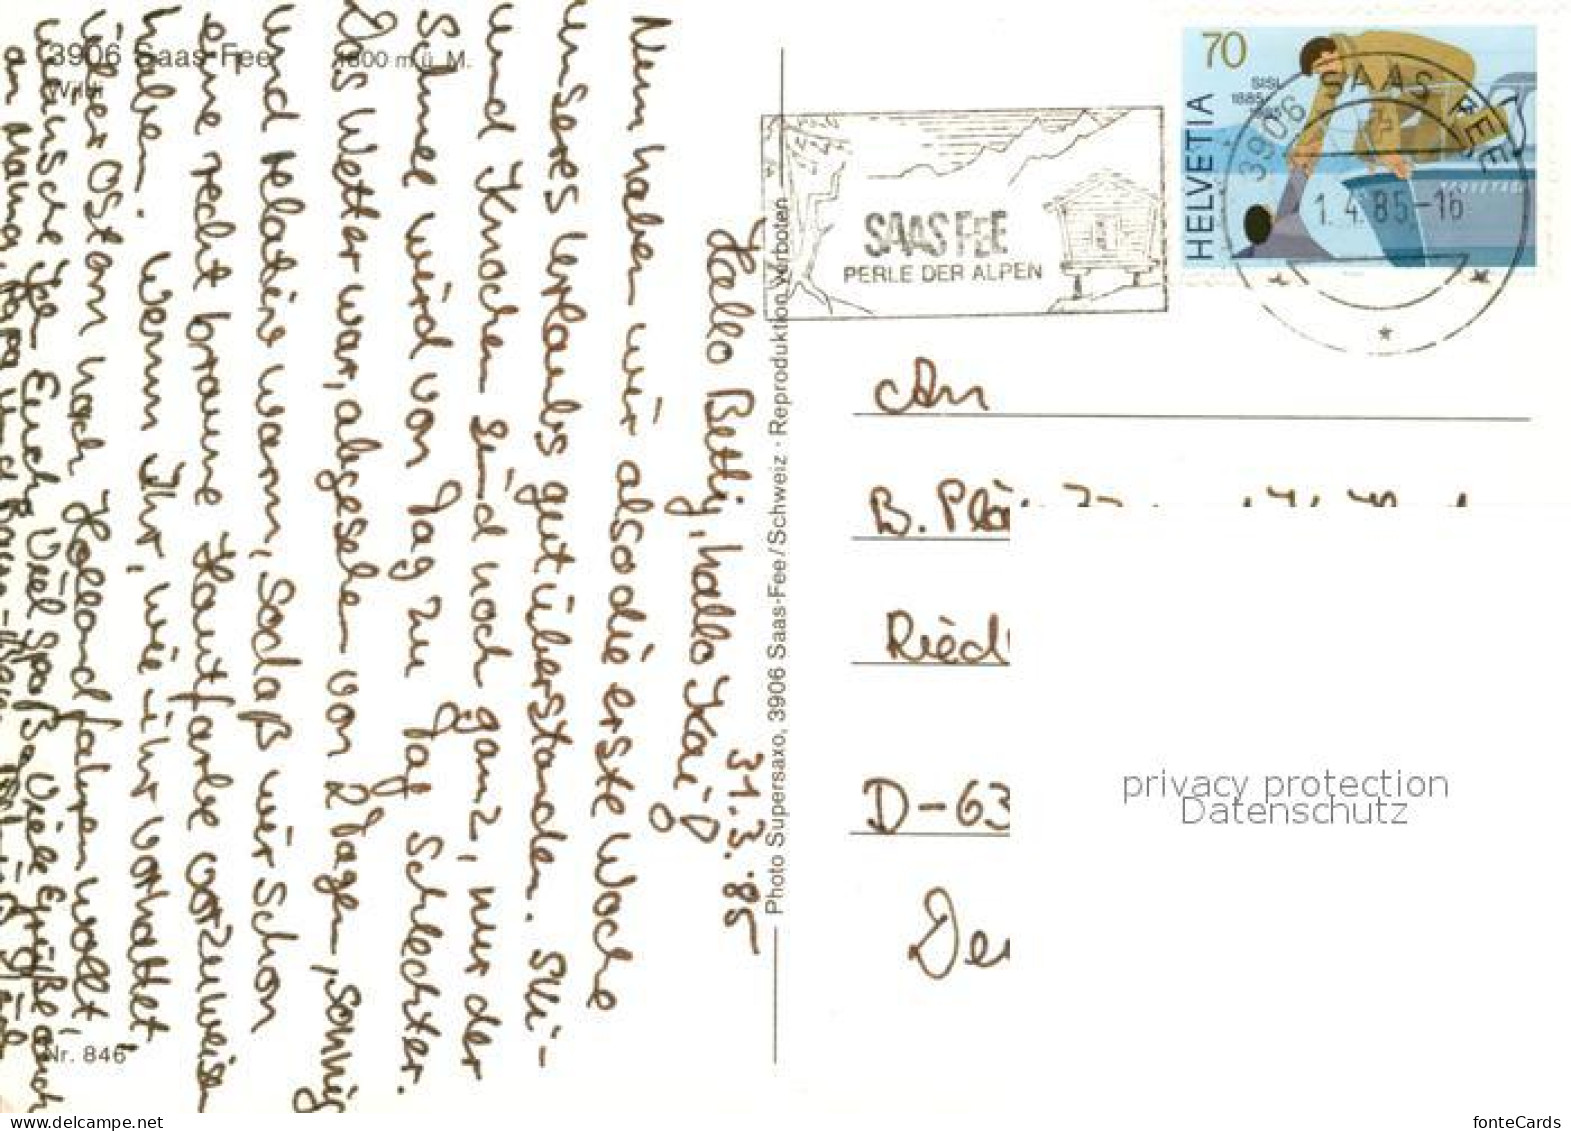 3906 Saas-Fee 1800 m ü. M.
Wildi
31.3.85
Hallo Betti, hallo Kai!
Nun haben wir also die erste Woche
unseres Urlaubs gut überstanden. Ski-
und Knochen sind noch ganz, nur der
Schnee wird von Tag zu Tag schlechter.
Das Wetter war, abgesehen von 2 Tagen, sonnig
und relativ warm, sodaß wir schon
eine recht braune Hautfarbe vorzuweisen
haben. Wenn Ihr, wie ihr vorhattet,
über Ostern nach Holland fahren wollt,
wünsche ich Euch viel Spaß. Viele Grüße auch
an Mama, Papa und
Nr. 846
Photo Supersaxo, 3906 Saas-Fee/Schweiz · Reproduktion verboten
SAAS FEE
PERLE DER ALPEN
70
SISL
1885
HELVETIA
3906 SAAS-FEE
1.4.85-16
An
B. Plä
Ried
D-63
privacy protection
Datenschutz
www.delcampe.net
fonteCards